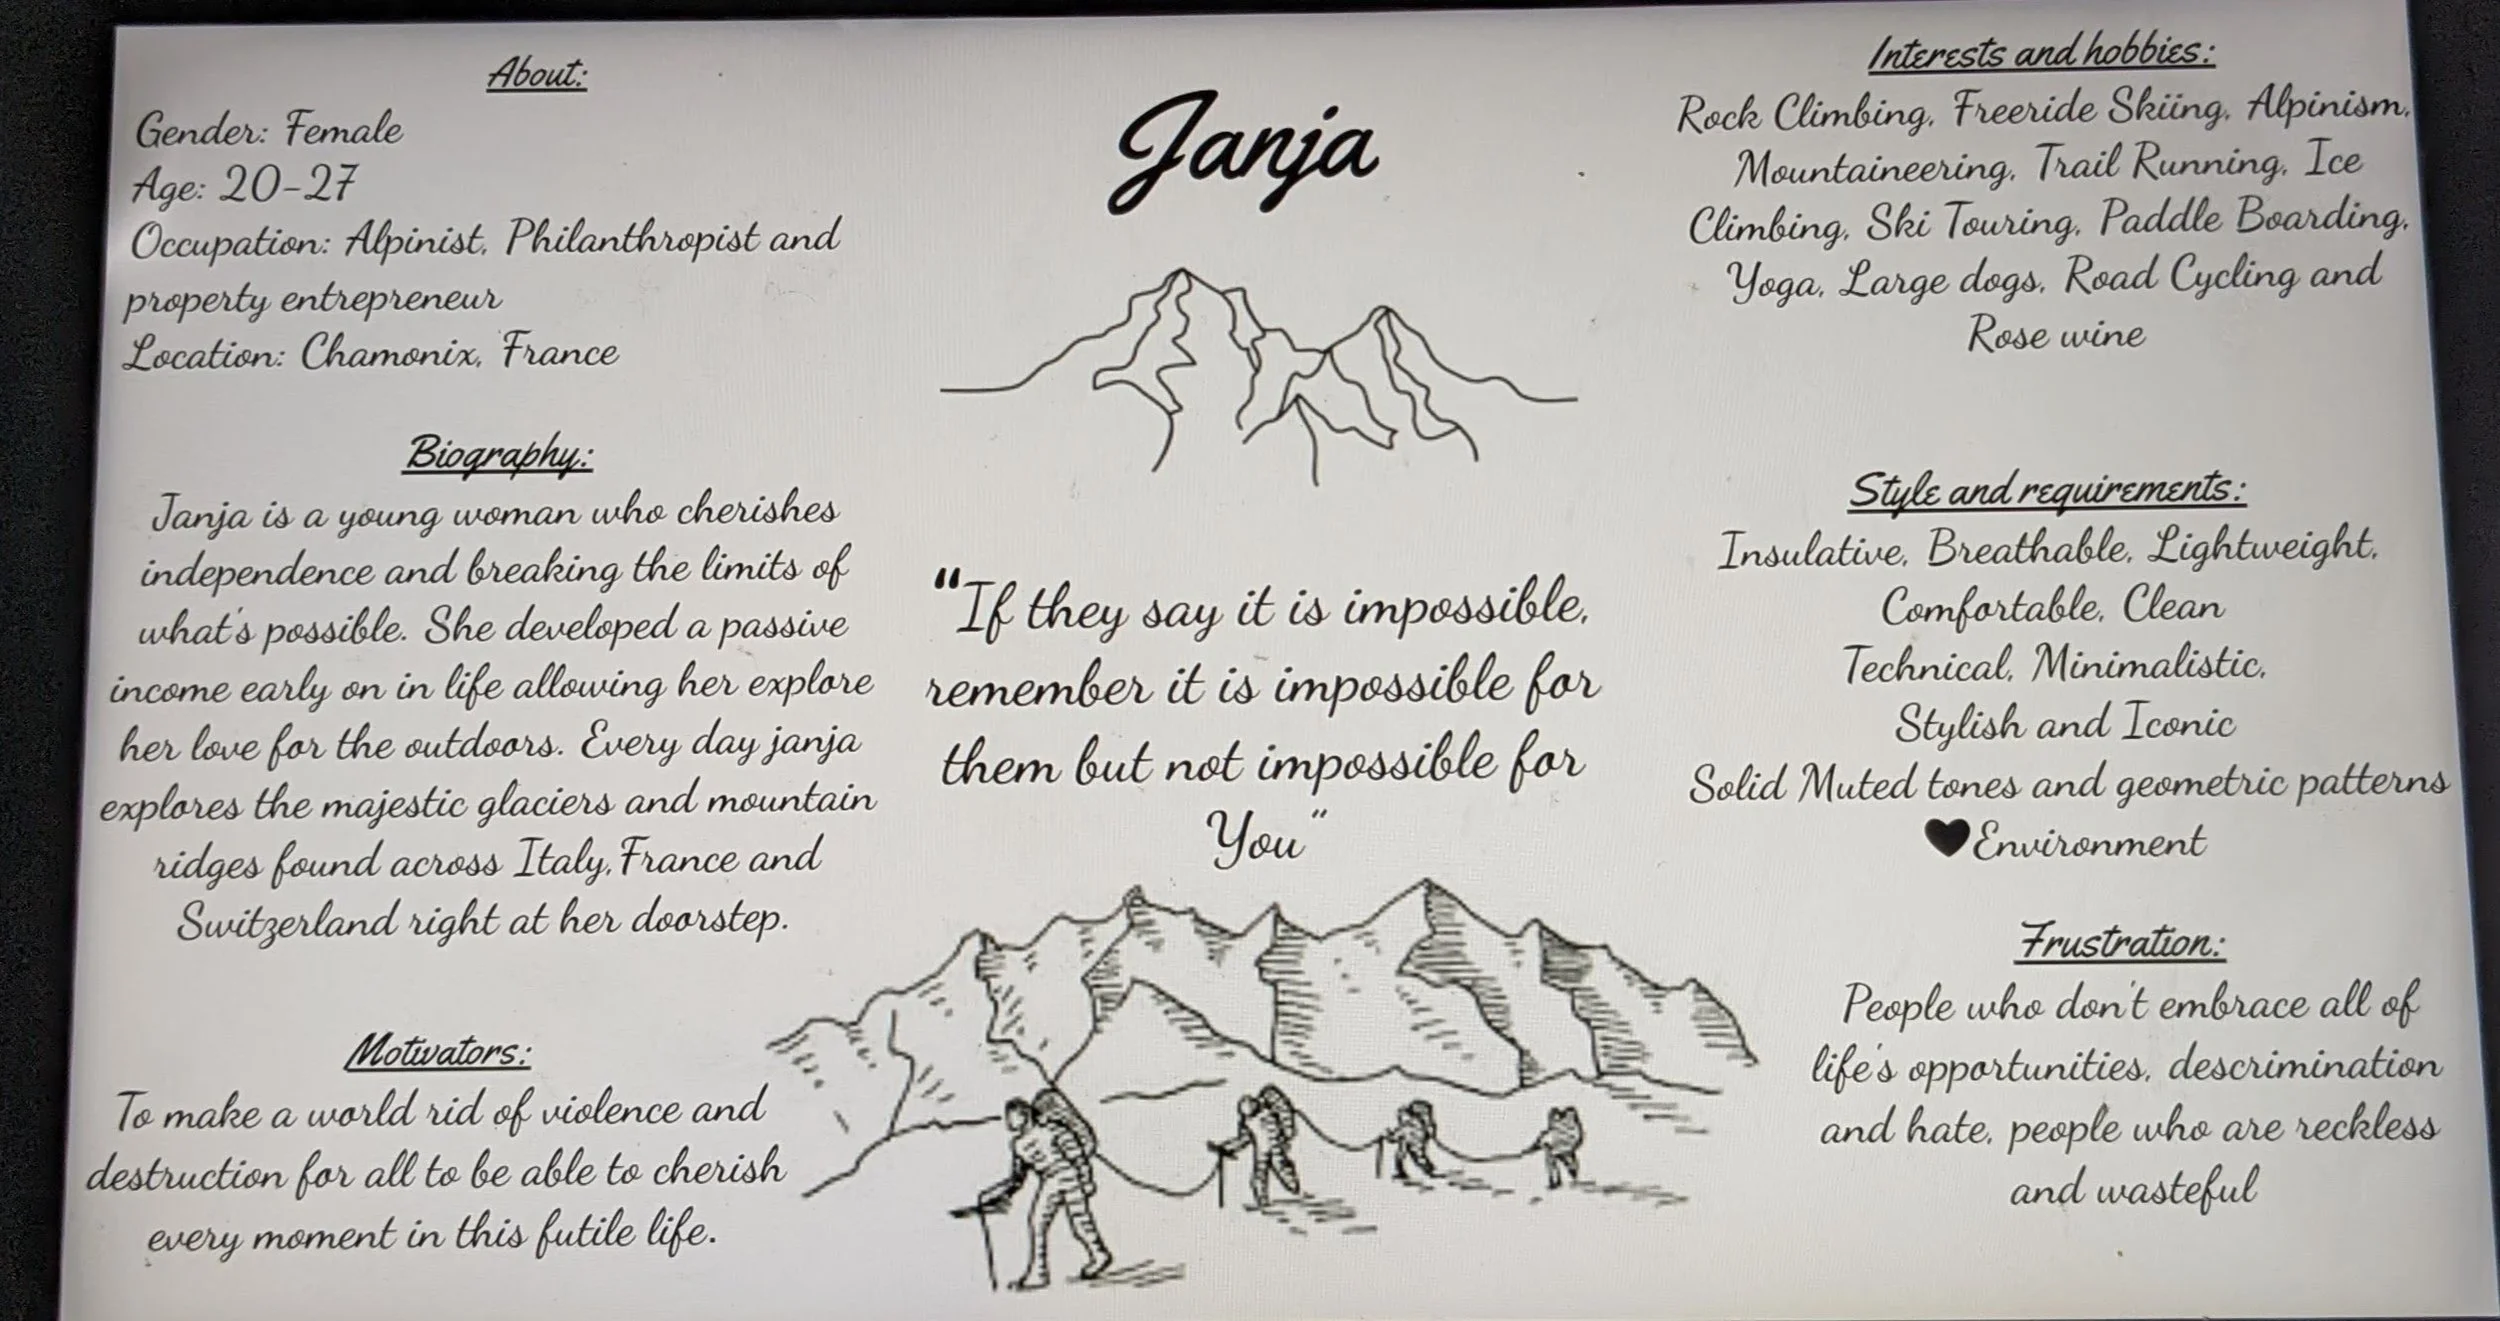 About:
Gender: Female
Age: 20-27
Occupation: Alpinist, Philanthropist and
property entrepreneur
Location: Chamonix, France
Biography:
Janja is a young woman who cherishes
independence and breaking the limits of
what's possible. She developed a passive
income early on in life allowing her explore
her love for the outdoors. Every day janja
explores the majestic glaciers and mountain
ridges found across Italy,France and
Switzerland right at her doorstep.
Motivators:
To make a world rid of violence and
destruction for all to be able to cherish
every moment in this futile life.
Janja
"If they say it is impossible,
remember it is impossible for
them but not impossible for
You"
Interests and hobbies:
Rock Climbing, Freeride Skiing, Alpinism,
Mountaineering, Trail Running, Ice
Climbing, Ski Touring, Paddle Boarding,
Yoga, Large dogs, Road Cycling and
Rose wine
Style and requirements:
Insulative, Breathable, Lightweight,
Comfortable, Clean
Technical, Minimalistic,
Stylish and Iconic
Solid Muted tones and geometric patterns
🖤Environment
Frustration:
People who don't embrace all of
life's opportunities, descrimination
and hate, people who are reckless
and wasteful